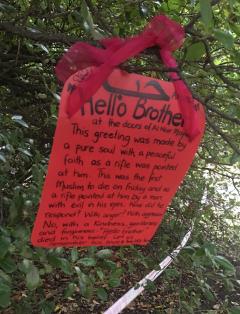 "Hello Brother"
at the doors of Al Noor Mosque
This greeting was made by
a pure soul with a peaceful
faith as a rifle was pointed
at him. This was the first
Muslim to die on friday and as
a rifle pointed at him by a man
with evil in his eyes. How did he
respond? With anger? With aggression
No, with a Kindness, gentleness
and forgiveness. "Hello brother"
died in his